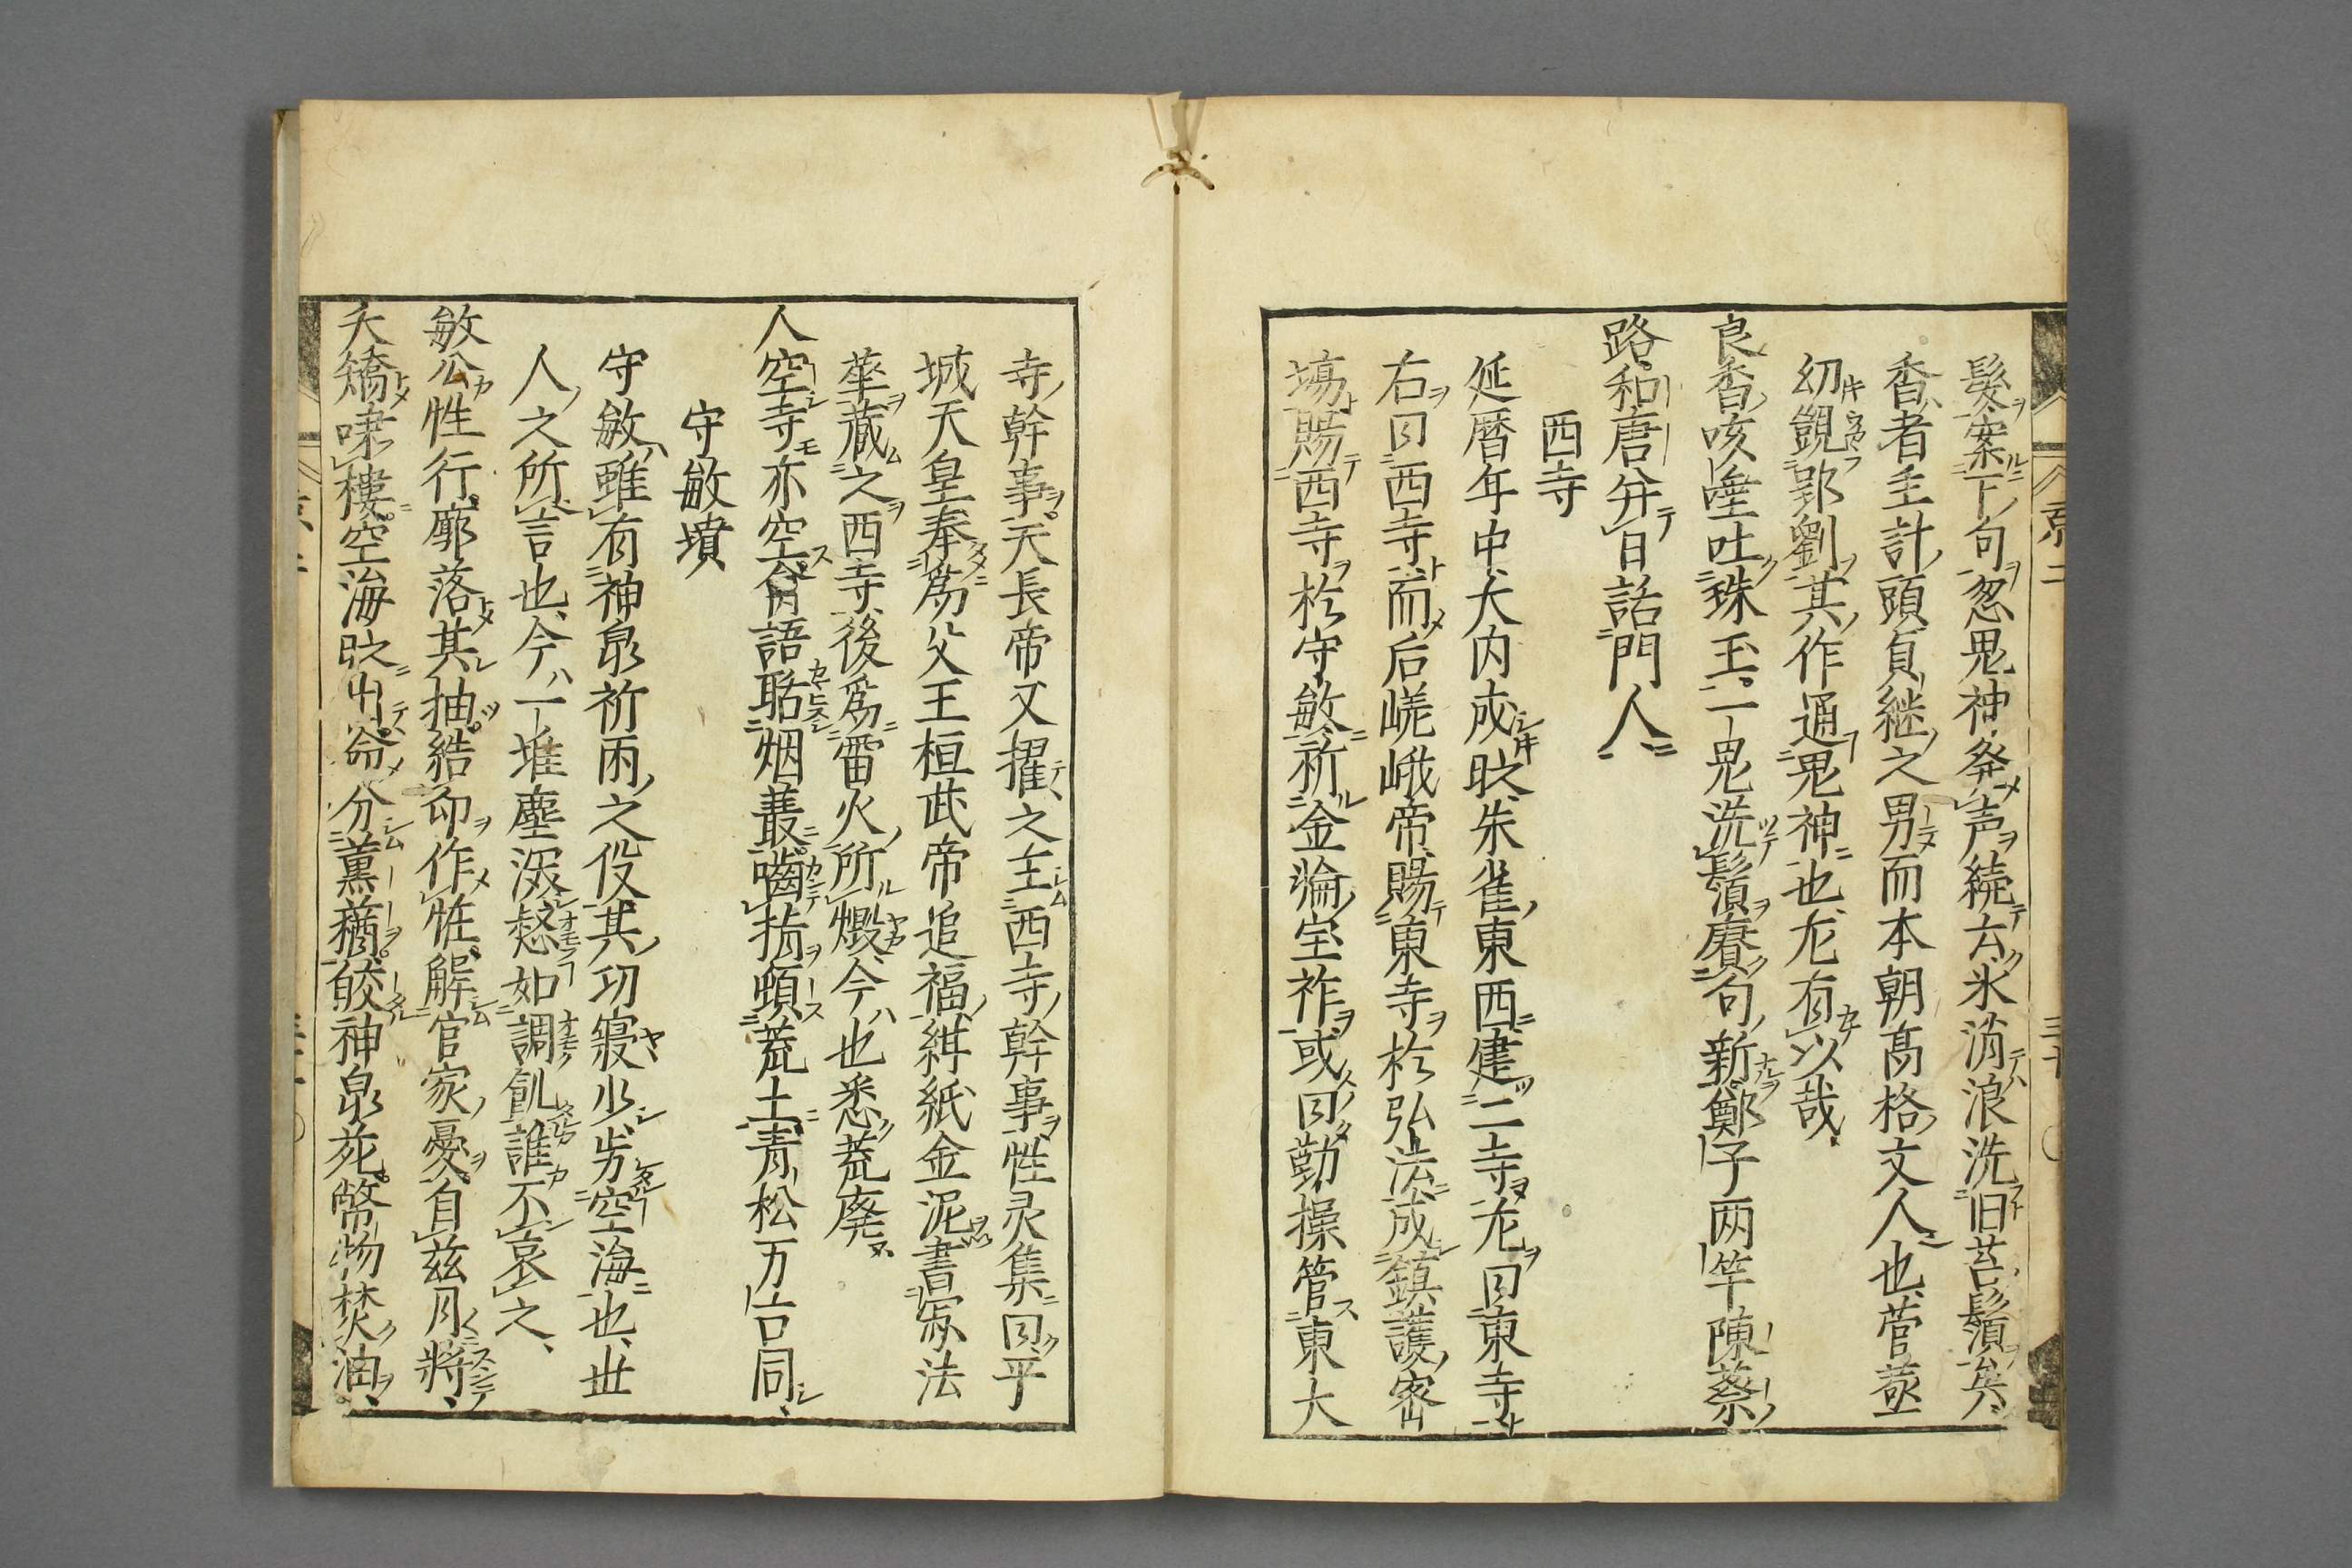 髮案下句忽鬼神発声続云氷消浪洗旧苔鬚矣
香者主計頭貞継之男而本朝高格文人也菅丞
幻覬郢劉其作通鬼神也尤有以哉
良香咳唾吐珠玉一鬼洗鬚賡句新鄭子両竿陳蔡
路和唐分日詰門人
西寺
延暦年中大内成時朱雀東西建二寺左曰東寺
右曰西寺而后嵯峨帝賜東寺於弘法成鎮護密
場賜西寺於守敏祈金輪宝祚或曰勤操管東大
寺幹事天長帝又擢之主西寺幹事性灵集曰平
城天皇奉為父王桓武帝追福紺紙金泥書写法
華蔵之西寺後為雷火所燬今也悉荒廃
人空寺亦空禽語聒烟叢嚙指頻荒土青松万古同
守敏墳
守敏雖有神泉祈雨之伇其功寝少劣空海也世
人之所言也今一堆塵深愁如調飢誰不哀之
敏公性行廓落其抽結印作怪解官家憂自茲月将
夭矯棲空海時出分薫蕕皎神泉苑幣物焚油
京二